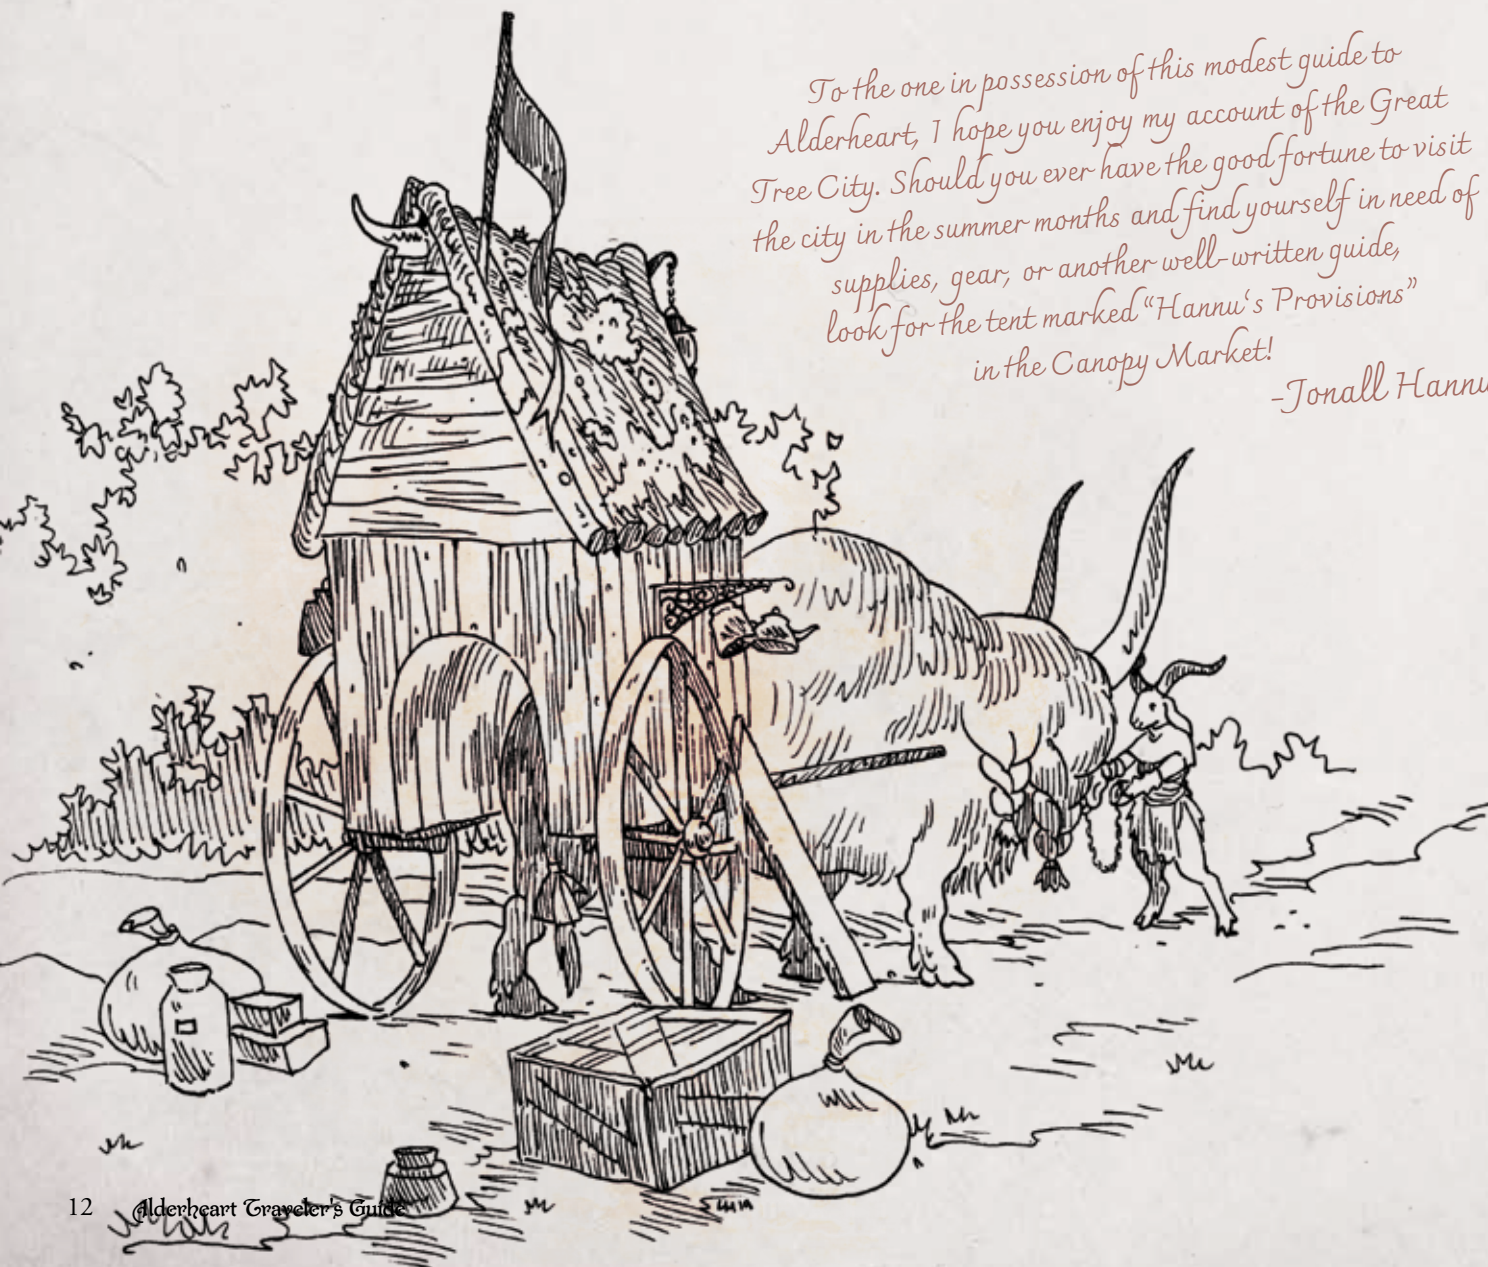 To the one in possession of this modest guide to
Alderheart, I hope you enjoy my account of the Great
Tree City. Should you ever have the good fortune to visit
the city in the summer months and find yourself in need of
supplies, gear, or another well-written guide,
look for the tent marked “Hannu‘s Provisions”
in the Canopy Market!
-Jonall Hannu
12 Alderheart Traveler's Guide